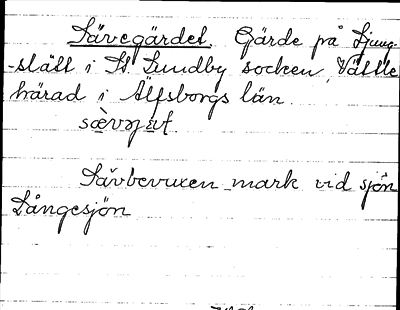 Sävegärdet. Gärde på Ljung-
-slätt i St. Lundby socken, Vättle
härad i Älfsborgs län.
Säfbevuxen mark vid sjön
Långesjön